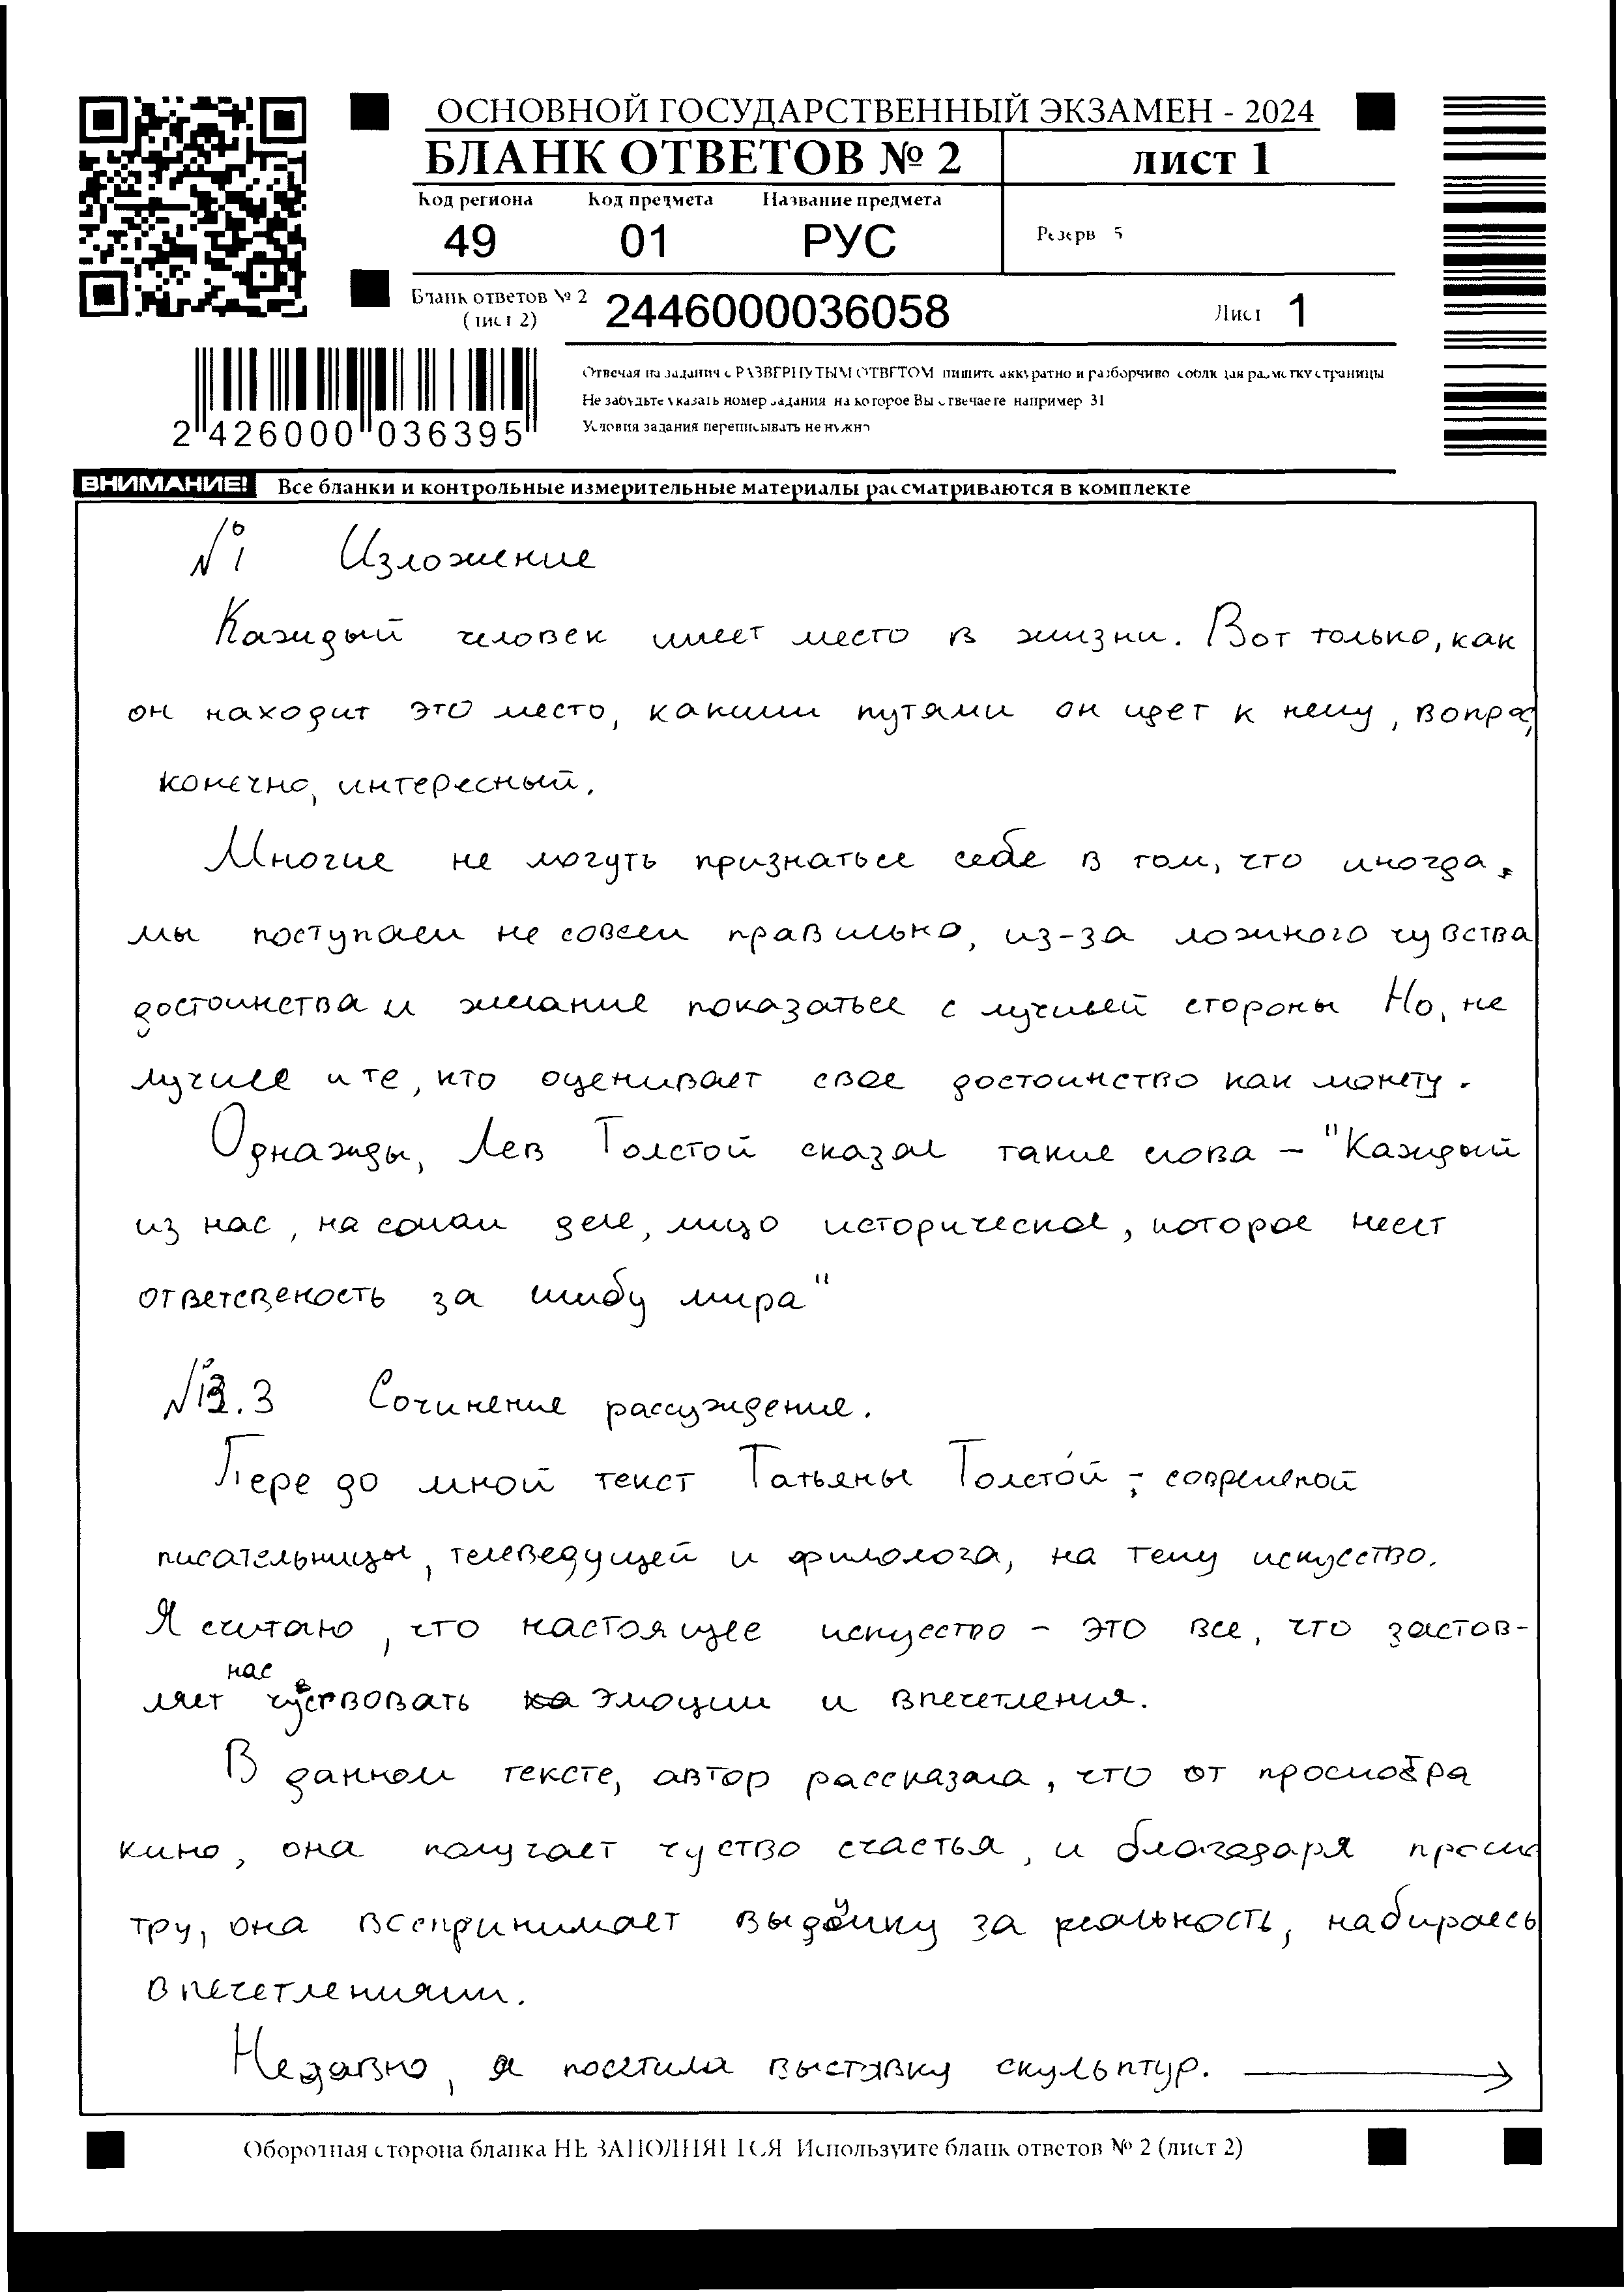 ОСНОВНОЙ ГОСУДАРСТВЕННЫЙ ЭКЗАМЕН - 2024
БЛАНК ОТВЕТОВ № 2 лист 1
Код региона Код предмета Название предмета
49 01 РУС Резерв 5
Бланк ответов № 2 (лист 2) 2446000036058 Лист 1
Отвечая на задания с РАЗВЕРНУТЫМ ОТВЕТОМ пишите аккуратно и разборчиво соблюдая разметку страницы
Не забудьте указать номер задания на которое Вы отвечаете например 31
Условия задания переписывать не нужно
2 426000 036395
ВНИМАНИЕ! Все бланки и контрольные измерительные материалы рассматриваются в комплекте
№1 Изложение
Каждый человек имеет место в жизни. Вот только, как
он находит это место, какими путями он идет к нему, вопрос,
конечно, интересный.
Многие не могуть признаться себе в том, что иногда,
мы поступаем не совсем правильно, из-за ложного чувства
достоинства и желание показаться с лучшей стороны Но, не
лучшее и те, кто оценивает свое достоинство как монету.
Однажды, Лев Толстой сказал такие слова - "Каждый
из нас, на самам деле, лицо историческое, которое несет
ответсвеность за судьбу мира"
№13.3 Сочинение рассуждение.
Пере до мной текст Татьяны Толстой - современой
писательницы, телеведущей и филолога, на тему искусство.
Я считаю, что настоящее искусство - это все, что застов-
ляет нас чувствовать эмоции и впечетления.
В данном тексте, автор рассказала, что от просмотра
кино, она получает чуство счастья, и благодаря просмо
тру, она воспринимает выдумку за реальность, набираесь
впечетлениями.
Недавно, я посетила выставку скульптур.
Оборотная сторона бланка НЕ ЗАПОЛНЯЕТСЯ Используйте бланк ответов № 2 (лист 2)